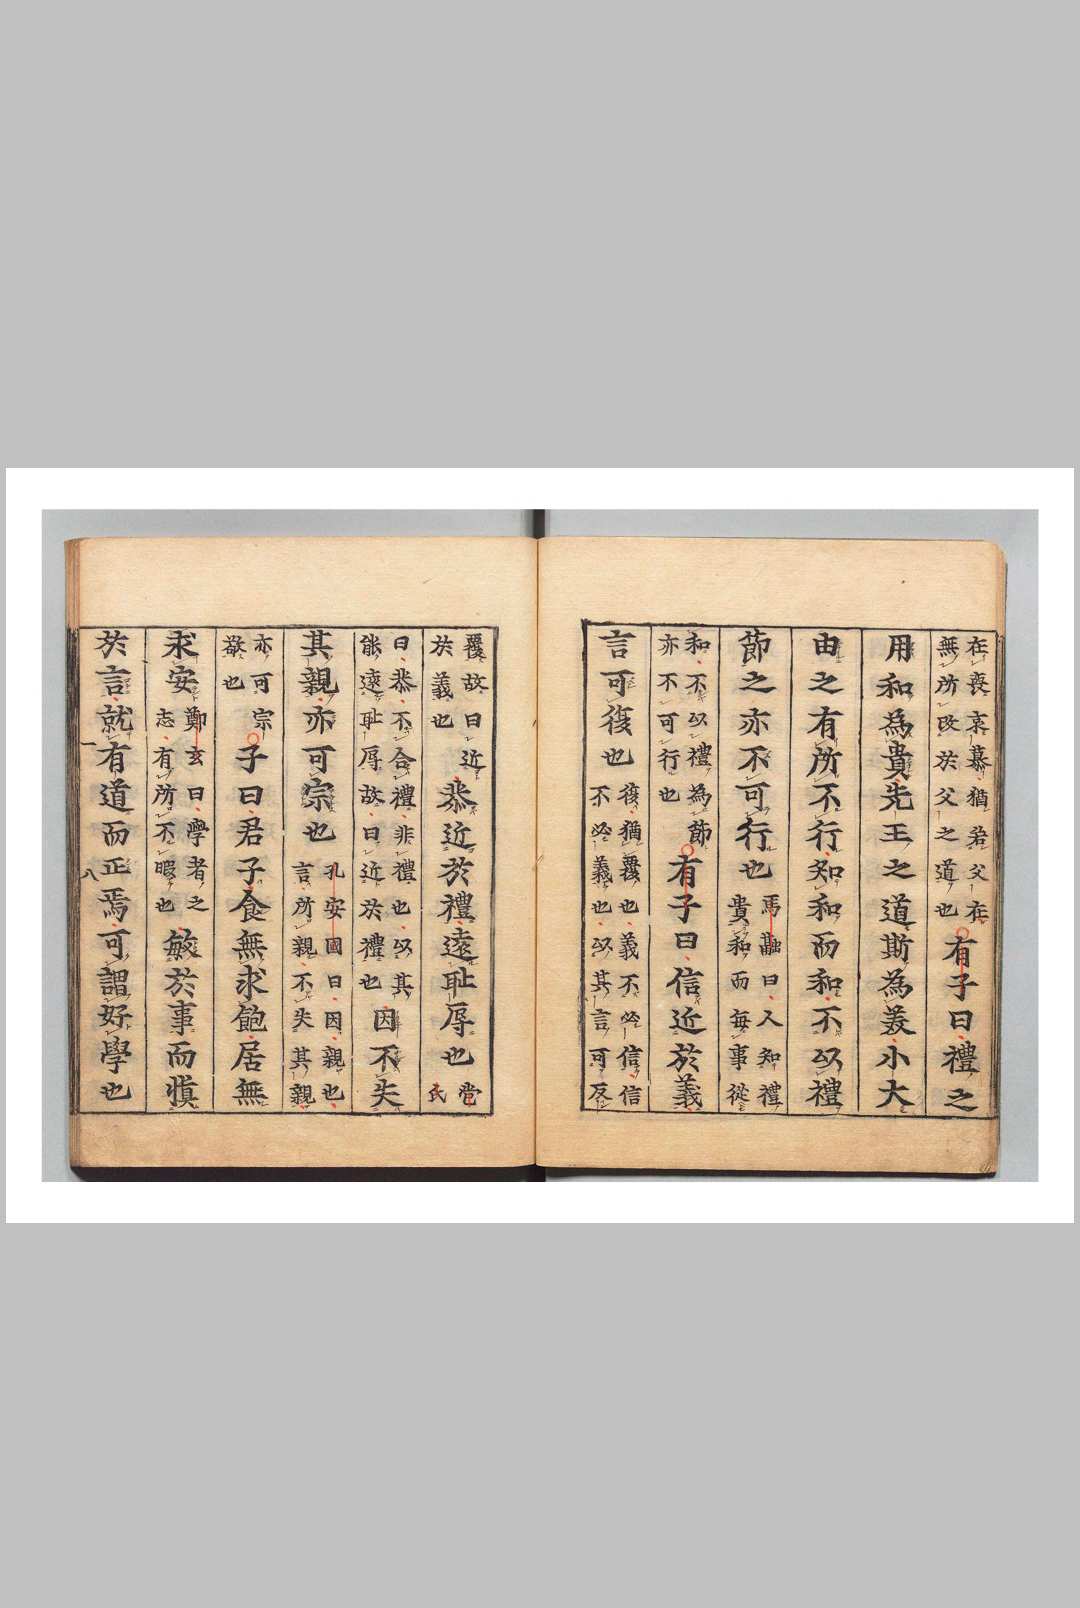 在喪哀慕猶若父在
無所改於父之道也
有子曰禮之
用和為貴先王之道斯為美小大
由之有所不行知和而和不以禮
節之亦不可行也
馬融曰人知禮
貴和而每事從
和不以禮為節
亦不可行也
有子曰信近於義
言可復也
復猶覆也義不必信信
不必義也以其言可反
覆故曰近
於義也
恭近於禮遠耻辱也
氏
曰恭不合禮非禮也以其
能遠耻辱故曰近於禮也
因不失
其親亦可宗也
孔安國曰因親也
言所親不失其親
亦可宗
敬也
子曰君子食無求飽居無
求安
鄭玄曰學者之
志有所不暇也
敏於事而慎
於言就有道而正焉可謂好學也
一
八